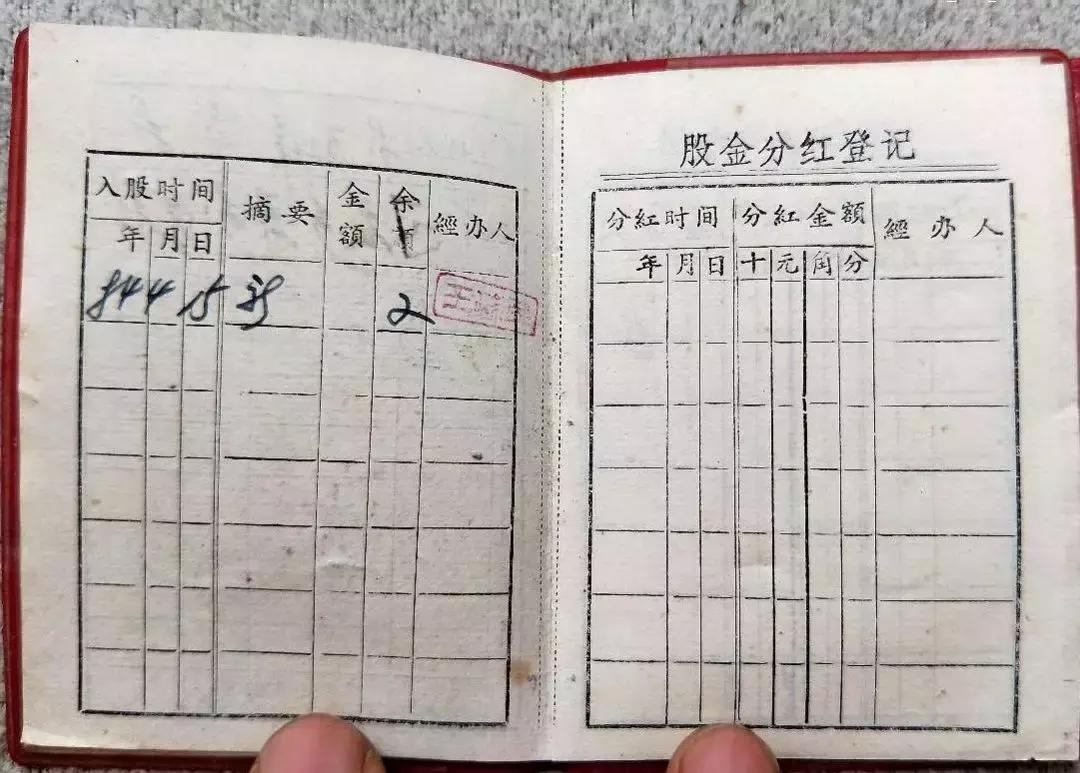 入股时间 摘要 金額 余額 經办人
年 月 日
4 15 2
股金分红登记
分紅时间 分紅金額 經办人
年 月 日 十 元 角 分